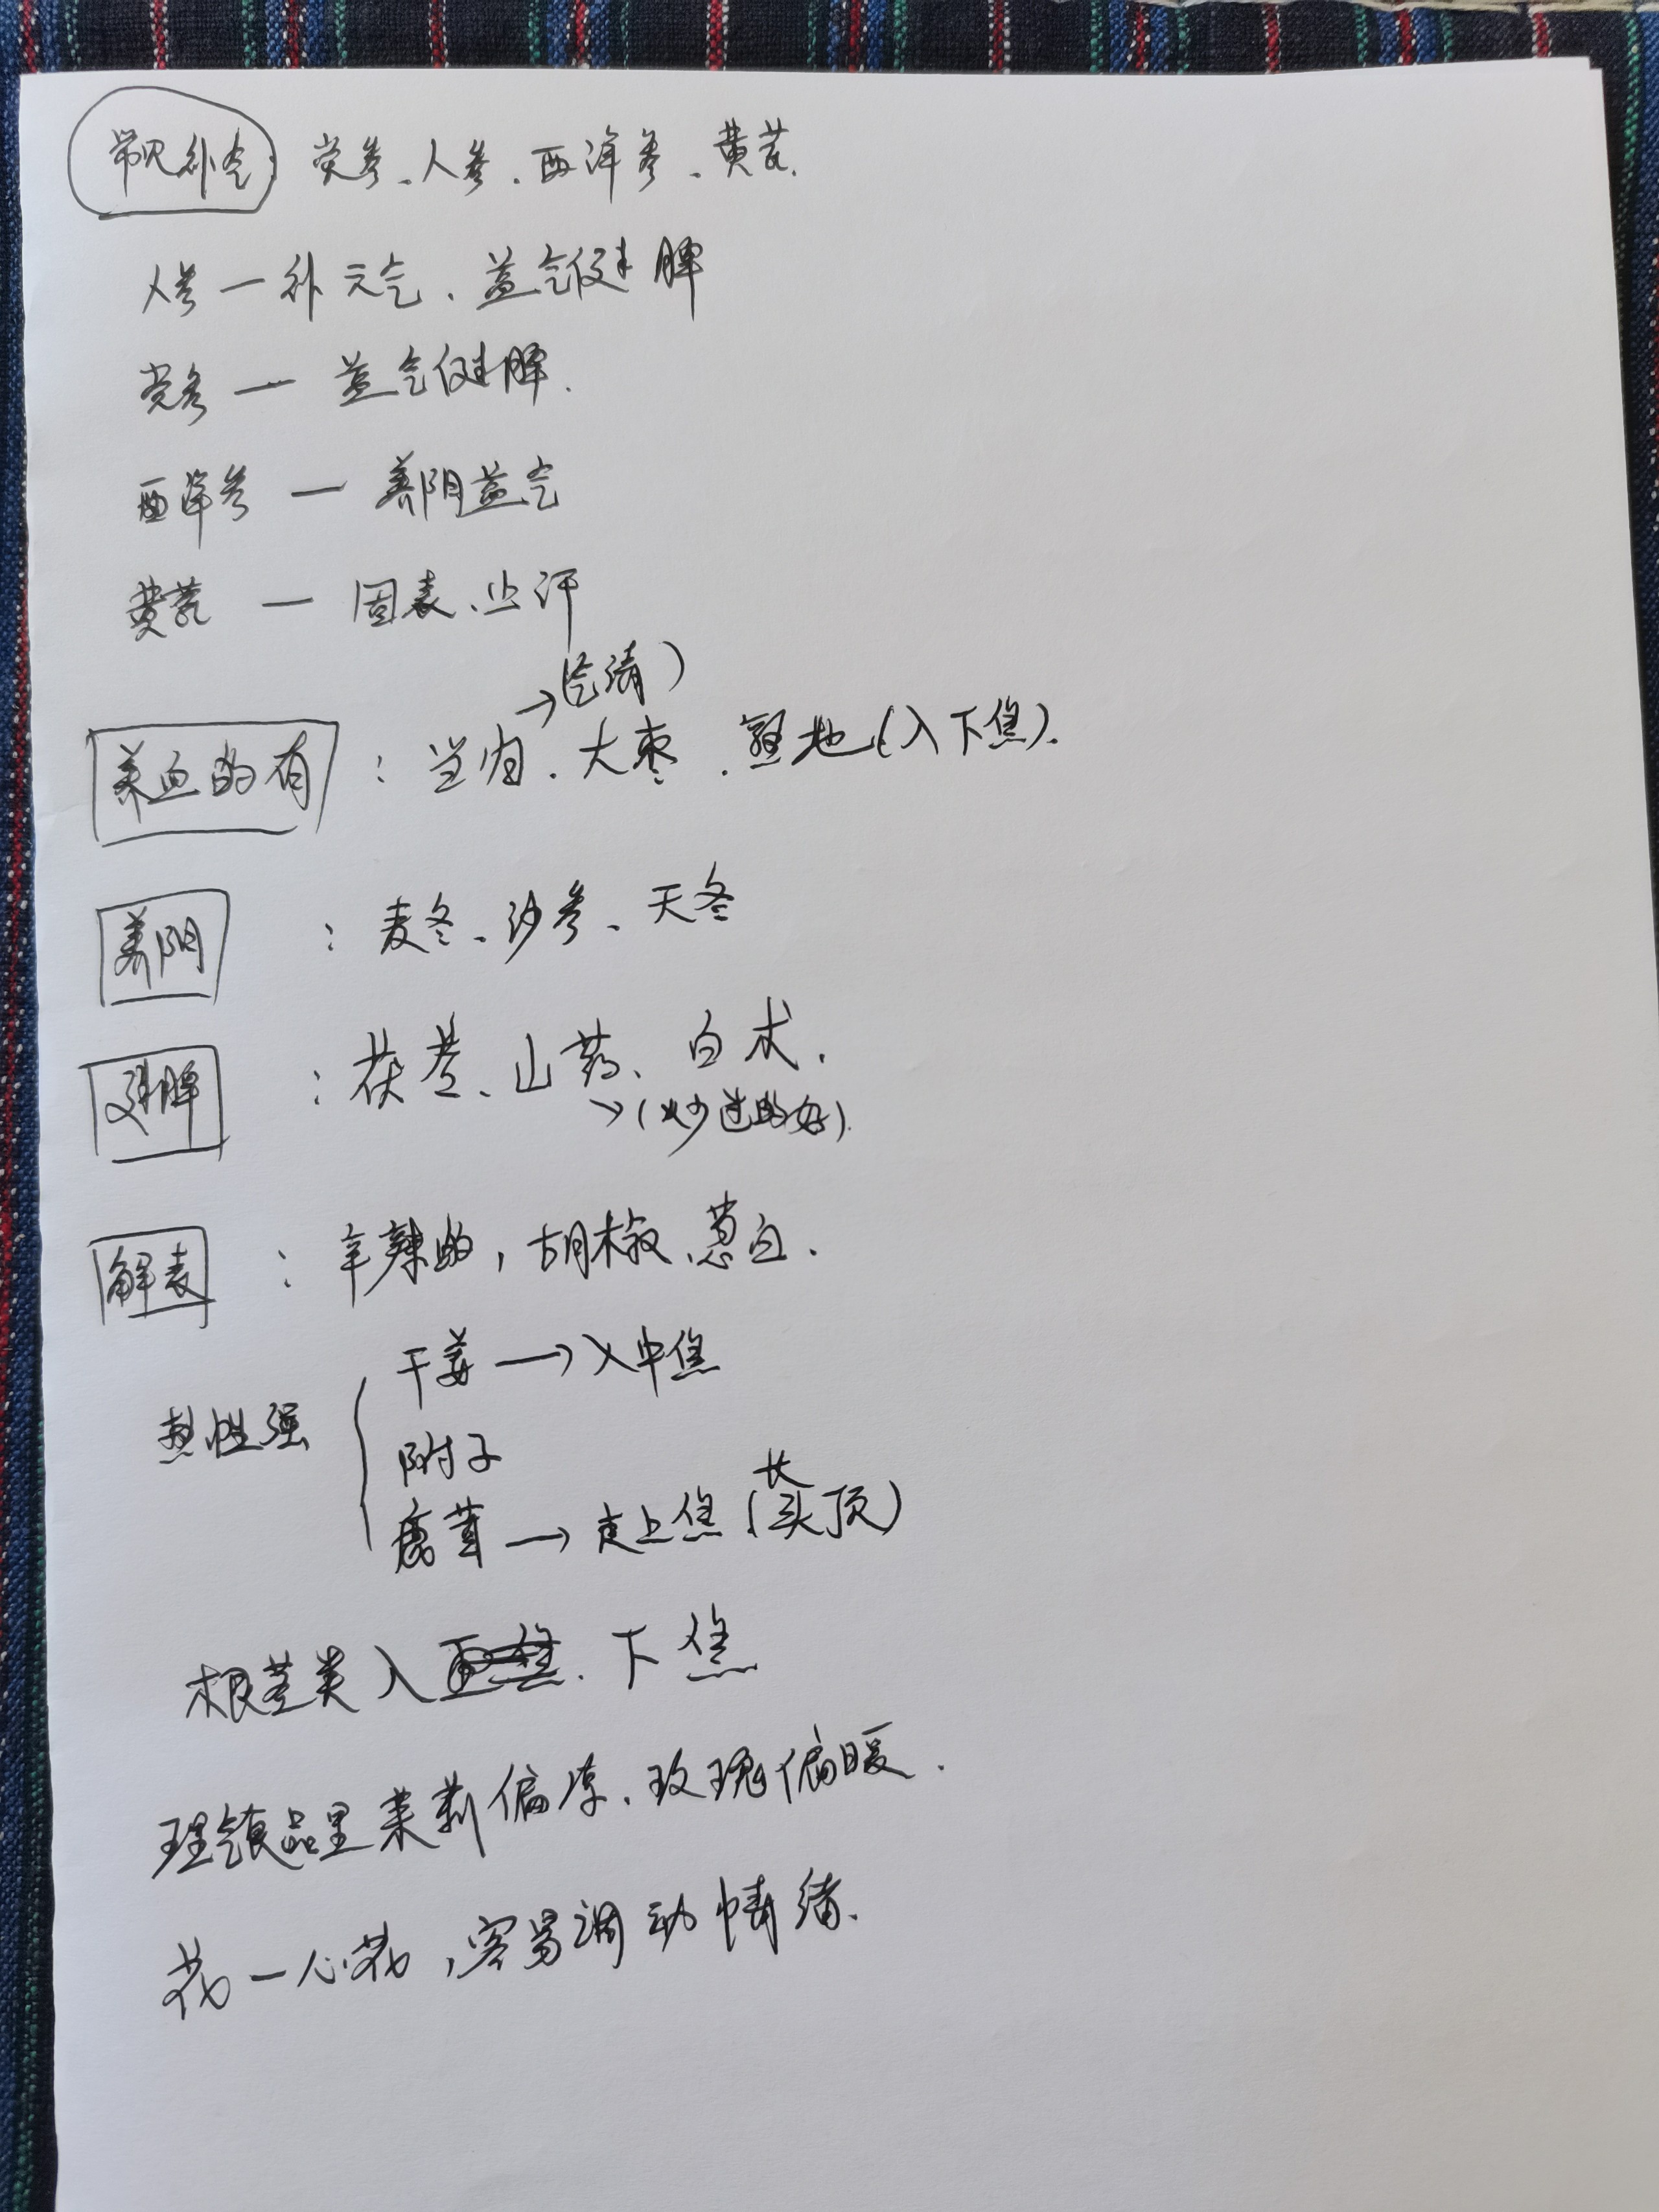 常见补气 党参、人参、西洋参、黄芪.
人参 — 补元气、益气健脾
党参 — 益气健脾.
西洋参 — 养阴益气
黄芪 — 固表、止汗
养血的有 : 当归、大枣、熟地(入下焦).
养阴 : 麦冬、沙参、天冬
健脾 : 茯苓、山药、白术.
→(炒过的好).
解表 : 辛辣的, 胡椒、葱白.
热性强
干姜 → 入中焦
附子
鹿茸 → 走上焦(长头顶)
根茎类入 下焦
理气食品里茉莉偏凉、玫瑰偏暖.
花—心花, 容易调动情绪.